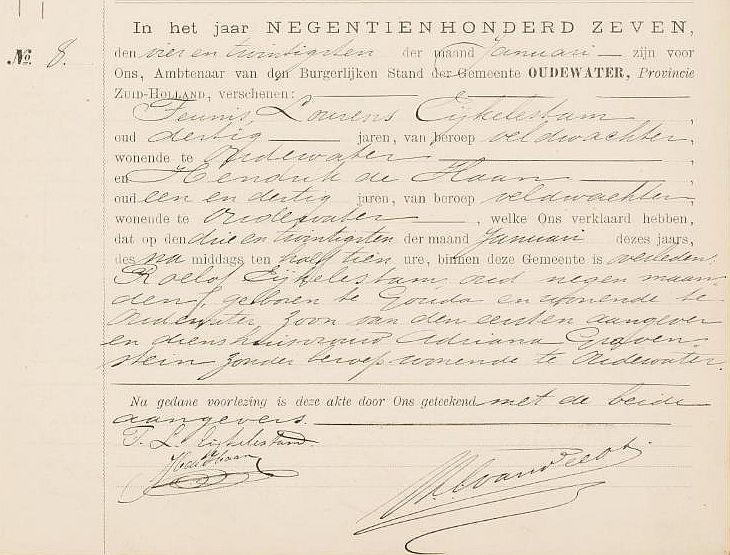 In het jaar NEGENTIENHONDERD ZEVEN,
No 8.
den vier en twintigsten der maand Januari zijn voor
Ons, Ambtenaar van den Burgerlijken Stand der Gemeente OUDEWATER, Provincie
ZUID-HOLLAND, verschenen:
Teunis Lourens Eijkelestam,
oud dertig jaren, van beroep veldwachter,
wonende te Oudewater,
en Hendrik de Haan,
oud een en dertig jaren, van beroep veldwachter,
wonende te Oudewater, welke Ons verklaard hebben,
dat op den drie en twintigsten der maand Januari dezes jaars,
des na middags ten half tien ure, binnen deze Gemeente is overleden:
Roelof Eijkelestam, oud negen maan-
den, geboren te Gouda en wonende te
Oudewater, zoon van den eersten aangever
en diens huisvrouw Adriana Graven-
stein zonder beroep wonende te Oudewater.
Na gedane voorlezing is deze akte door Ons geteekend met de beide
aangevers.
T. L. Eijkelestam
H de Haan